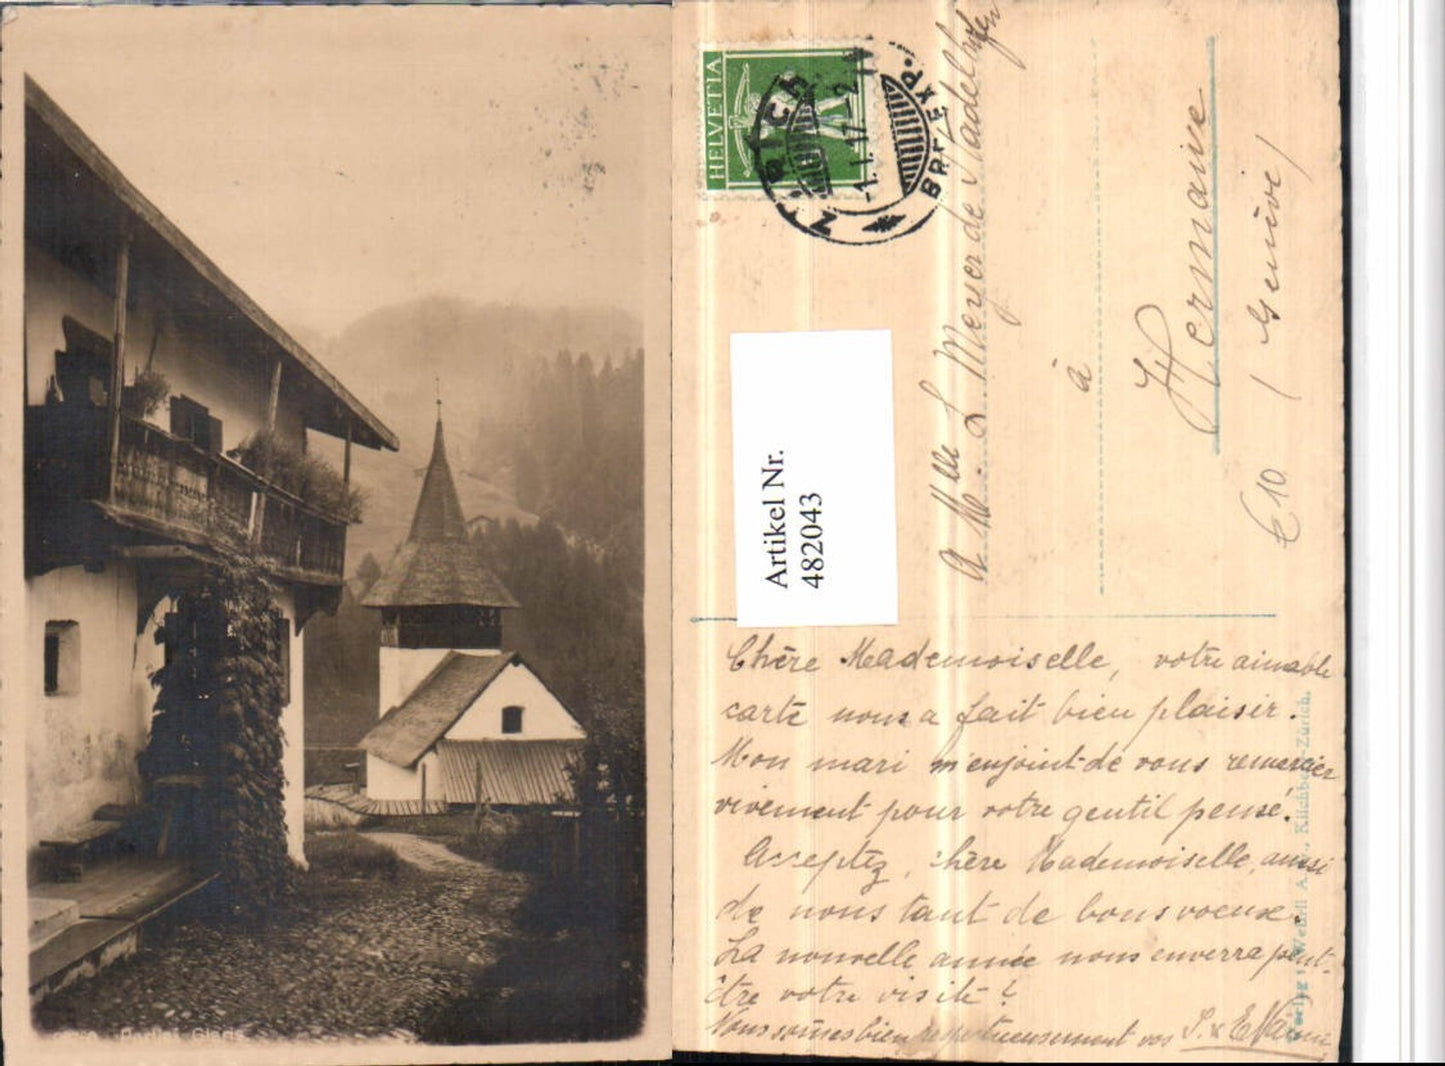 HELVETIA
ZÜRICH
1.I.17-2
BRF.EXP.
Artikel Nr.
482043
A Mlle. L. Meyer de Stadelhofen
à
Hermance
(Genève)
€ 10
Chère Mademoiselle, votre aimable
carte nous a fait bien plaisir.
Mon mari m'enjoint de vous remercier
vivement pour votre gentil pensé.
Acceptez, chère Mademoiselle, aussi
de nous tant de bons voeux.
La nouvelle année nous enverra peut-
être votre visite?
Nous sommes bien respectueusement vos S. & E.
Verlag: Wehrli A.-G., Kilchberg-Zürich.